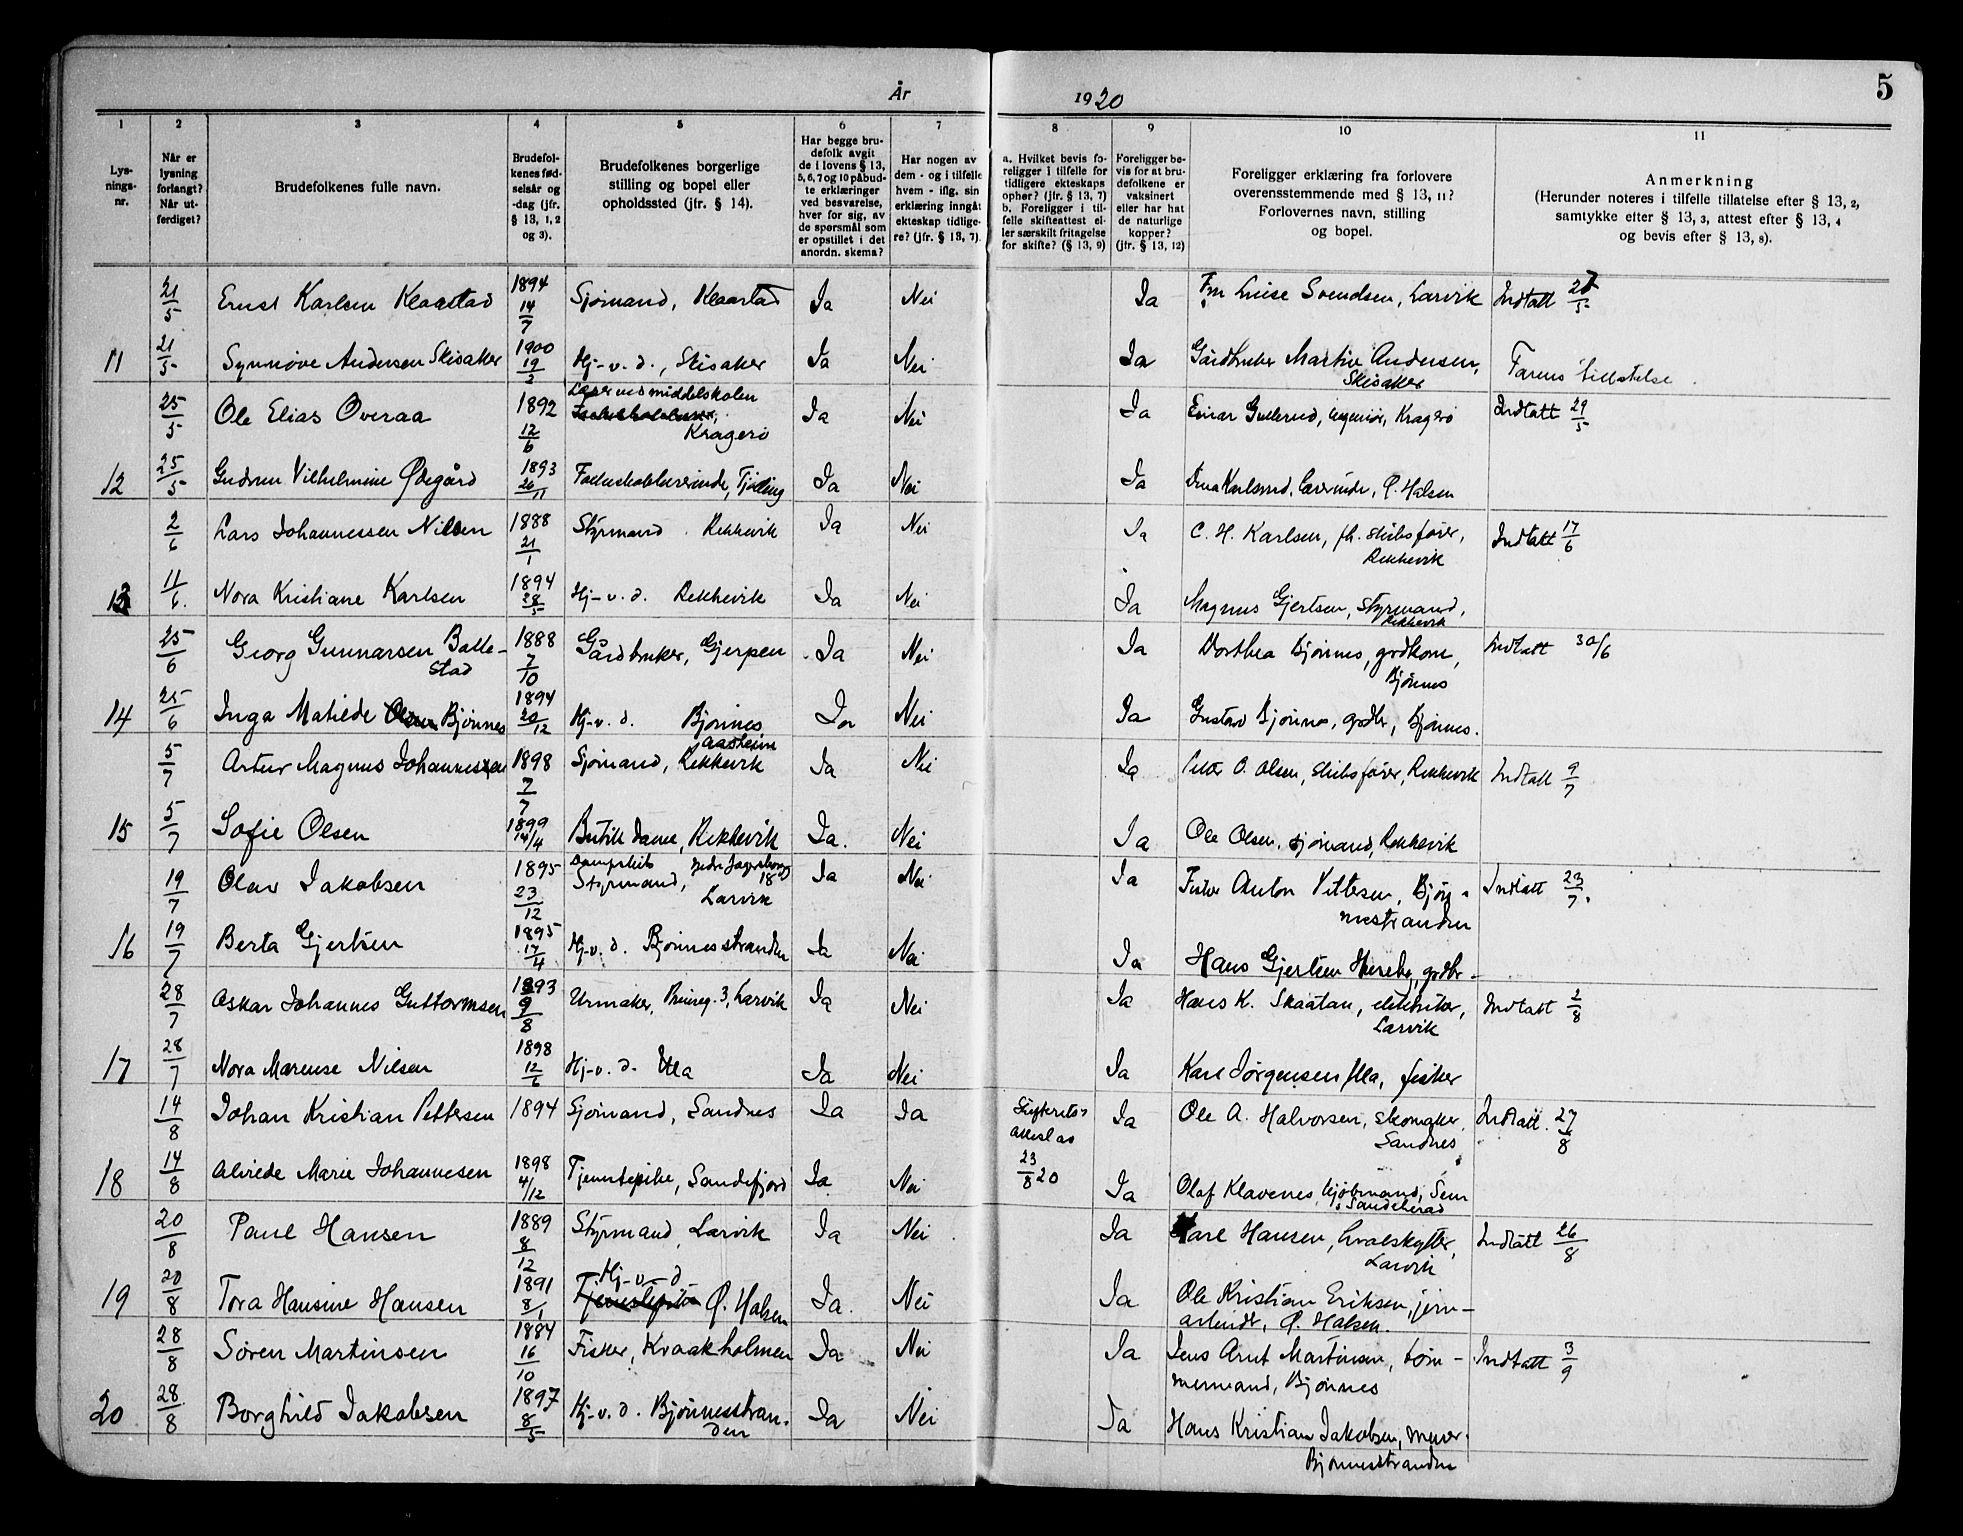 År 1920
5
1 2 3 4 5 6 7 8 9 10 11
Lys-
nings-
nr.
Når er
lysning
forlangt?
Når ut-
ferdiget?
Brudefolkenes fulle navn.
Brudefol-
kenes fød-
selsår og
-dag (jfr.
§ 13, 1, 2
og 3).
Brudefolkenes borgerlige
stilling og bopel eller
opholdssted (jfr. § 14).
Har begge bru-
defolk avgit
de i lovens § 13,
5, 6, 7 og 10 påbud-
te erklæringer
ved besvarelse,
hver for sig, av
de spørsmål som
er opstillet i det
anordn. skema?
Har nogen av
dem - og i tilfelle
hvem - iflg. sin
erklæring inngått
ekteskap tidlige-
re? (jfr. § 13, 7).
a. Hvilket bevis fo-
religger i tilfelle for
tidligere ekteskaps
ophør? (jfr. § 13, 7)
b. Foreligger i til-
felle skifteattest el-
ler særskilt fritagelse
for skifte? (§ 13, 9)
Foreligger be-
vis for at bru-
defolkene er
vaksinert
eller har hat
de naturlige
kopper?
(jfr. § 13, 12)
Foreligger erklæring fra forlovere
overensstemmende med § 13, 11?
Forlovernes navn, stilling
og bopel.
Anmerkning
(Herunder noteres i tilfelle tillatelse efter § 13, 2,
samtykke efter § 13, 3, attest efter § 13, 4
og bevis efter § 13, 8).
21/5 Ernst Karlsen Klaastad 1894 14/7 Sjømand, Klaastad Ia Nei Ia Luise Svendsen, Larvik Indtatt 27/5
11 21/5 Synnøve Andersen Skisaker 1900 19/2 Hj-v.d., Skisaker Ia Nei Ia Gårdbruker Martin Andersen, Skisaker Farens tillatelse.
25/5 Ole Elias Overaa 1892 12/6 Lærer ved middelskolen Kragerø Ia Nei Ia Einar Gullerud, ingeniør, Kragerø Indtatt 29/5
12 25/5 Gudrun Vilhelmine Ødegård 1893 26/11 Folkeskolelærerinde, Tjølling Ia Nei Ia Karlsrud, lærerinde, Ø. Halsen
2/6 Lars Johannessen Nilsen 1888 21/1 Styrmand. Rekkevik Ia Nei Ia C. H. Karlsen, fh. skibsfører, Rekkevik Indtatt 17/6
13 11/6. Nora Kristiane Karlsen 1894 28/5 Hj-v.d. Rekkevik Ia Nei Ia Magnus Gjertsen, styrmand, Rekkevik
25/6 Georg Gunnarsen Balle-
stad 1888 7/10 Gårdbruker, Gjerpen Ia Nei Ia Dorthea Bjønnes, grdkone, Bjønnes Indtatt 30/6
14 25/6 Inga Matilde Olsen Bjønnes 1894 20/12 Hj-v.d. Bjønnes Ia Nei Ia Gustav Bjønnes, grdbr, Bjønnes.
5/7 Artur Magnus Johannessen 1898 7/7 Sjømand, Aasheim Rekkevik Ia Nei Ia Petter O. Olsen, skibsfører, Rekkevik Indtatt 9/7
15 5/7 Sofie Olsen 1899 14/4 Butikkdame, Rekkevik Ia. Nei Ia Ole Olsen, sjømand, Rekkevik
19/7 Olav Jakobsen 1895 23/12 Dampskibs Styrmand, Nedre Jegersborg 18 Larvik Ia Nei Ia Fisker Anton Pettersen, Bjøn-
nesstranden Indtatt 23/7.
16 19/7 Berta Gjertsen 1895 17/4 Hj-v.d. Bjønnesstranden Ia Nei Ia Hans Gjertsen Huseby, grdbr-
28/7 Oskar Johannes Guttormsen 1893 9/8 Urmaker, 3, Larvik Ia Nei Ia Hans K. Skaatan, elektriker, Larvik Indtatt 2/8
17 28/7 Nora Marense Nilsen 1898 12/6 Hj-v.d. Ula Ia Nei Ia Karl Jørgensen Ula, fisker
14/8 Johan Kristian Pettersen 1894 Sjømand, Sandnes Ia Ia Skifterets-
attest av 23/8 20 Ia Ole A. Halvorsen, skomaker, Sandnes Indtatt. 27/8
18 14/8 Alvide Marie Johannesen 1898 4/12 Tjenestepike, Sandefjord Ia Nei Ia Olaf Klavenes, kjøbmand, Sem, Sandeherad
20/8 Paul Hansen 1889 8/12 Styrmand, Larvik Ia Nei Ia Karl Hansen, hvalskytter, Larvik Indtatt 26/8
19 20/8 Tora Hansine Hansen 1891 8/1 Hj-v-d Tjenestepike Ø. Halsen Ia. Nei Ia Ole Kristian Eriksen, jern-
arbeider, Ø. Halsen.
28/8 Søren Martinsen 1884 16/10 Fisker, Kraakholmen Ia Nei Ia Jens Arnt Martinsen, tøm-
mermand, Bjønnes Indtatt 3/9
20 28/8 Borghild Jakobsen 1897 8/5 Hj-v.d. Bjønnesstran-
den Ia Nei Ia Hans Kristian Jakobsen, murer. Bjønnesstranden